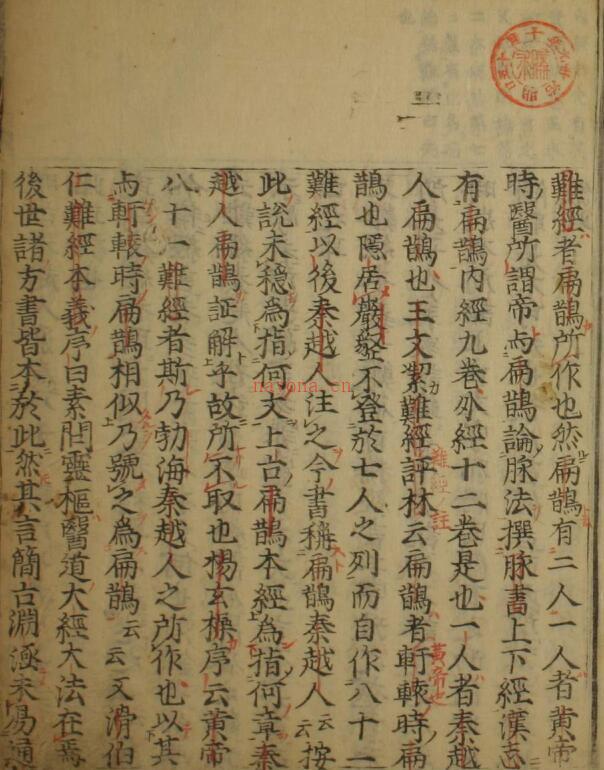 難經者扁鵲所作也然扁鵲有二人一人者黄帝
時醫所謂帝与扁鵲論脉法撰脉書上下經漢志
有扁鵲内經九卷外經十二卷是也一人者秦越
人扁鵲也王文絜難經評林云扁鵲者軒轅時扁
鵲也隱居巖嶽不登於七人之列而自作八十一
難經以後秦越人注之今書稱扁鵲秦越人云云按
此説未穩為指何文上古扁鵲本經為指何章秦
越人扁鵲証解乎故所不取也楊玄操序云黄帝
八十一難經者斯乃勃海秦越人之所作也以其
与軒轅時扁鵲相似乃號之為扁鵲云云又滑伯
仁難經本義序曰素問靈樞醫道大經大法在焉
後世諸方書皆本於此然其言簡古淵涵未易通
難經註
黄帝也
nayona.cn